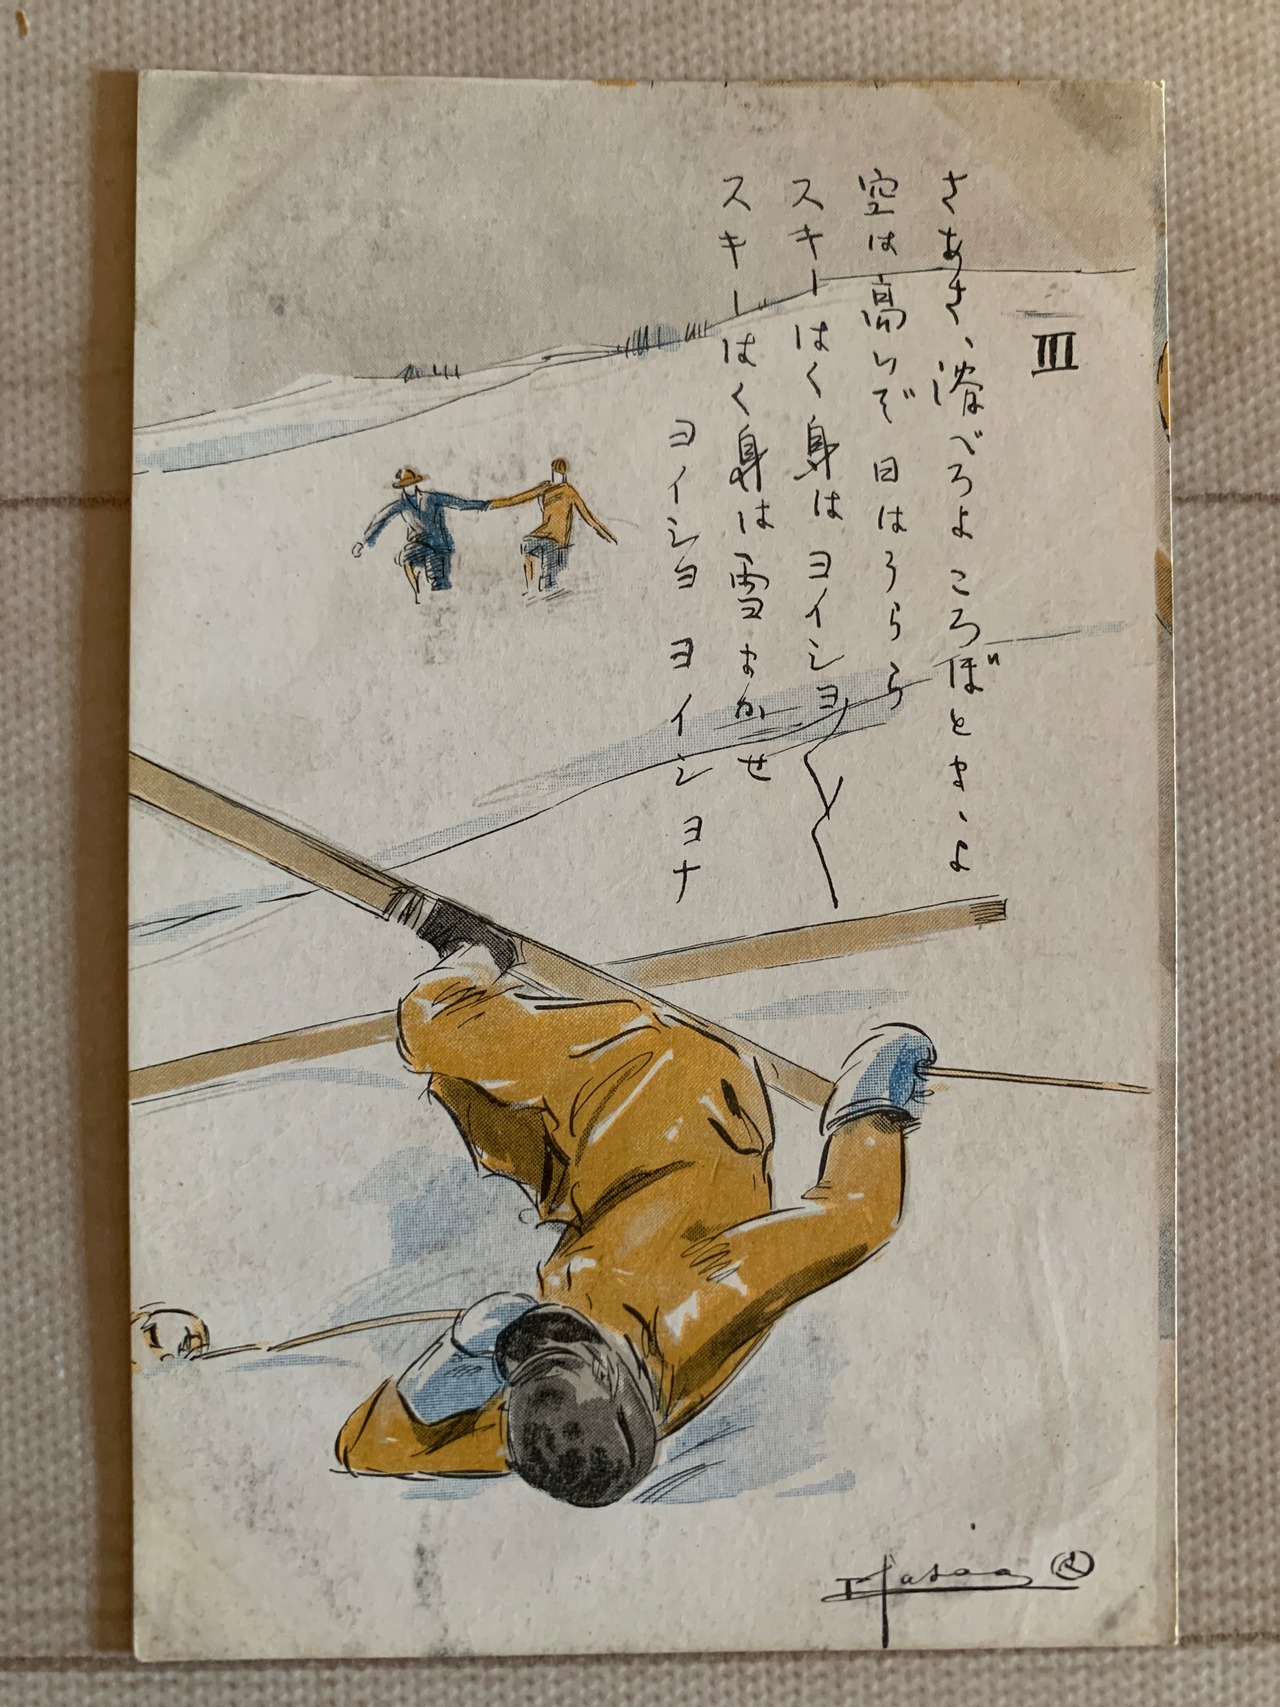 III
さあさ、滑べろよ ころぼとまゝよ
空は高いぞ 日はうらら
スキーはく身は ヨイシヨ〱
スキーはく身は雪まかせ
ヨイシヨ ヨイシヨナ